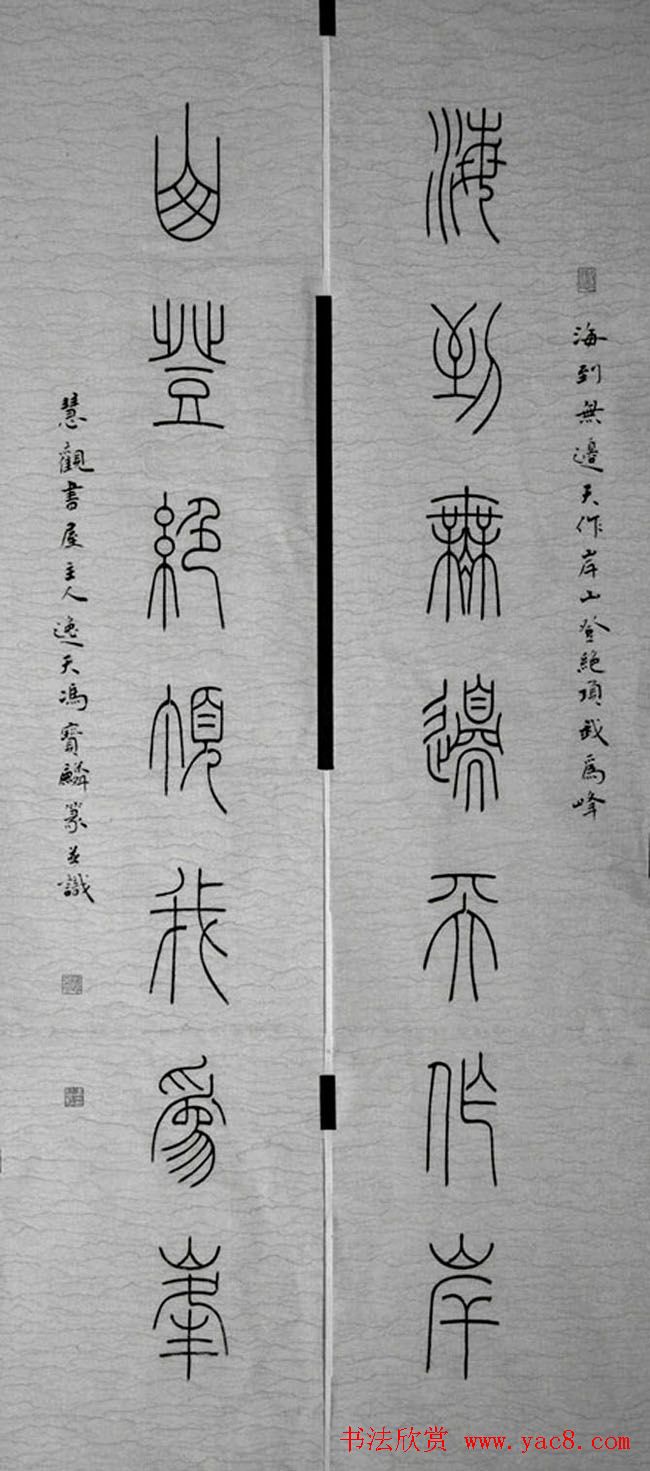 海到無邊天作岸山登絶頂我爲峰
海到無邊天作岸
山登絶頂我爲峯
慧觀書屋主人逸天馮寶麟篆並識
书法欣赏 www.yac8.com